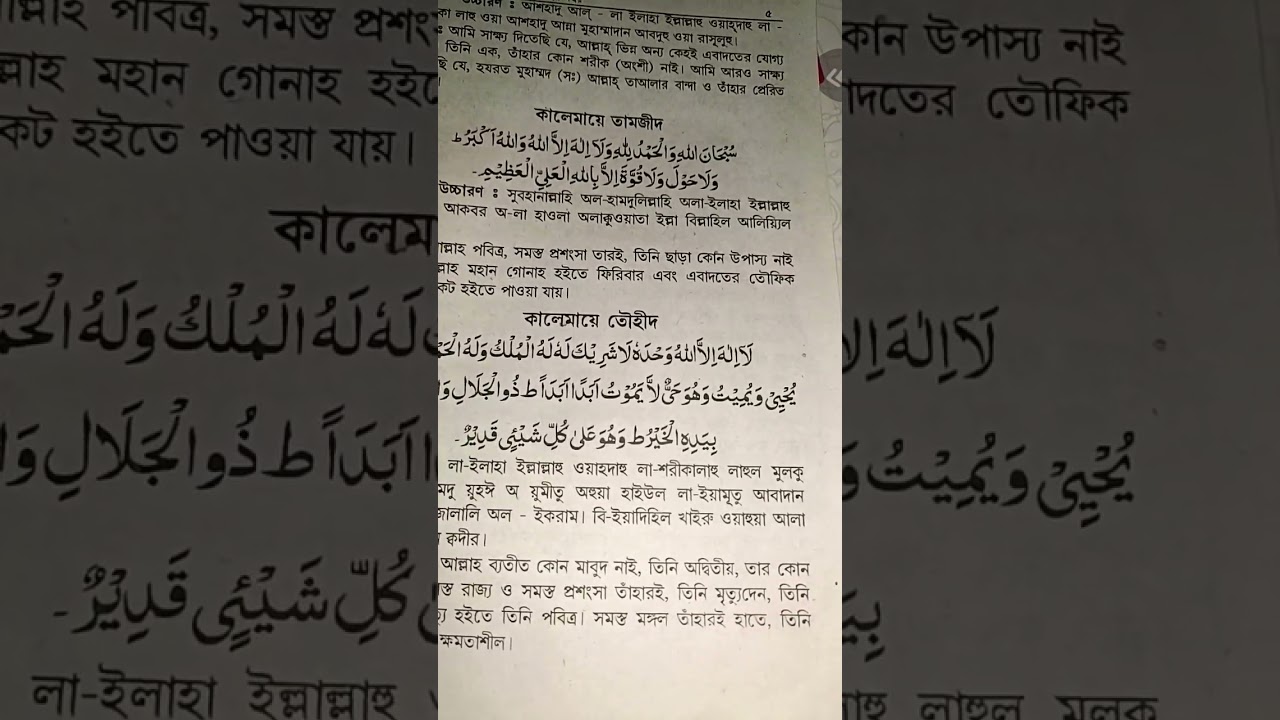 উচ্চারণ : আশহাদু আল্ - লা ইলাহা ইল্লাল্লাহু ওয়াহ্দাহু লা -
৫
কা লাহু ওয়া আশহাদু আন্না মুহাম্মাদান আবদুহু ওয়া রাসূলুহু।
: আমি সাক্ষ্য দিতেছি যে, আল্লাহ্ ভিন্ন অন্য কেহই এবাদতের যোগ্য
তিনি এক, তাঁহার কোন শরীক (অংশী) নাই। আমি আরও সাক্ষ্য
ছি যে, হযরত মুহাম্মদ (সঃ) আল্লাহ্ তাআলার বান্দা ও তাঁহার প্রেরিত
কালেমায়ে তামজীদ
سُبْحَانَ اللهِ وَالْحَمْدُ لِلّٰهِ وَلَا اِلٰهَ اِلَّا اللهُ وَاللهُ اَكْبَرُ ط
وَلَا حَوْلَ وَلَا قُوَّةَ اِلَّا بِاللهِ الْعَلِيِّ الْعَظِيْمِ۔
উচ্চারণ : সুবহানাল্লাহি অল-হামদুলিল্লাহি অলা-ইলাহা ইল্লাল্লাহু
আকবর অ-লা হাওলা অলাক্বুওয়াতা ইল্লা বিল্লাহিল আলিয়্যিল
ল্লাহ পবিত্র, সমস্ত প্রশংসা তারই, তিনি ছাড়া কোন উপাস্য নাই
ল্লাহ মহান গোনাহ হইতে ফিরিবার এবং এবাদতের তৌফিক
কট হইতে পাওয়া যায়।
কালেমায়ে তৌহীদ
لَا اِلٰهَ اِلَّا اللهُ وَحْدَهٗ لَا شَرِيْكَ لَهٗ لَهُ الْمُلْكُ وَلَهُ الْحَمْ
يُحْيِىْ وَيُمِيْتُ وَهُوَ حَىٌّ لَّا يَمُوْتُ اَبَدًا اَبَدًا ط ذُو الْجَلَالِ وَا
بِيَدِهِ الْخَيْرُ ط وَهُوَ عَلٰى كُلِّ شَيْئٍ قَدِيْرٌ۔
লা-ইলাহা ইল্লাল্লাহু ওয়াহদাহু লা-শরীকালাহু লাহুল মুলকু
মদু য়ুহঈ অ য়ুমীতু অহুয়া হাইউল লা-ইয়ামূতু আবাদান
জালালি অল - ইকরাম। বি-ইয়াদিহিল খাইরু ওয়াহুয়া আলা
ক্বদীর।
আল্লাহ ব্যতীত কোন মাবুদ নাই, তিনি অদ্বিতীয়, তার কোন
স্ত রাজ্য ও সমস্ত প্রশংসা তাঁহারই, তিনি মৃত্যুদেন, তিনি
হইতে তিনি পবিত্র। সমস্ত মঙ্গল তাঁহারই হাতে, তিনি
ক্ষমতাশীল।